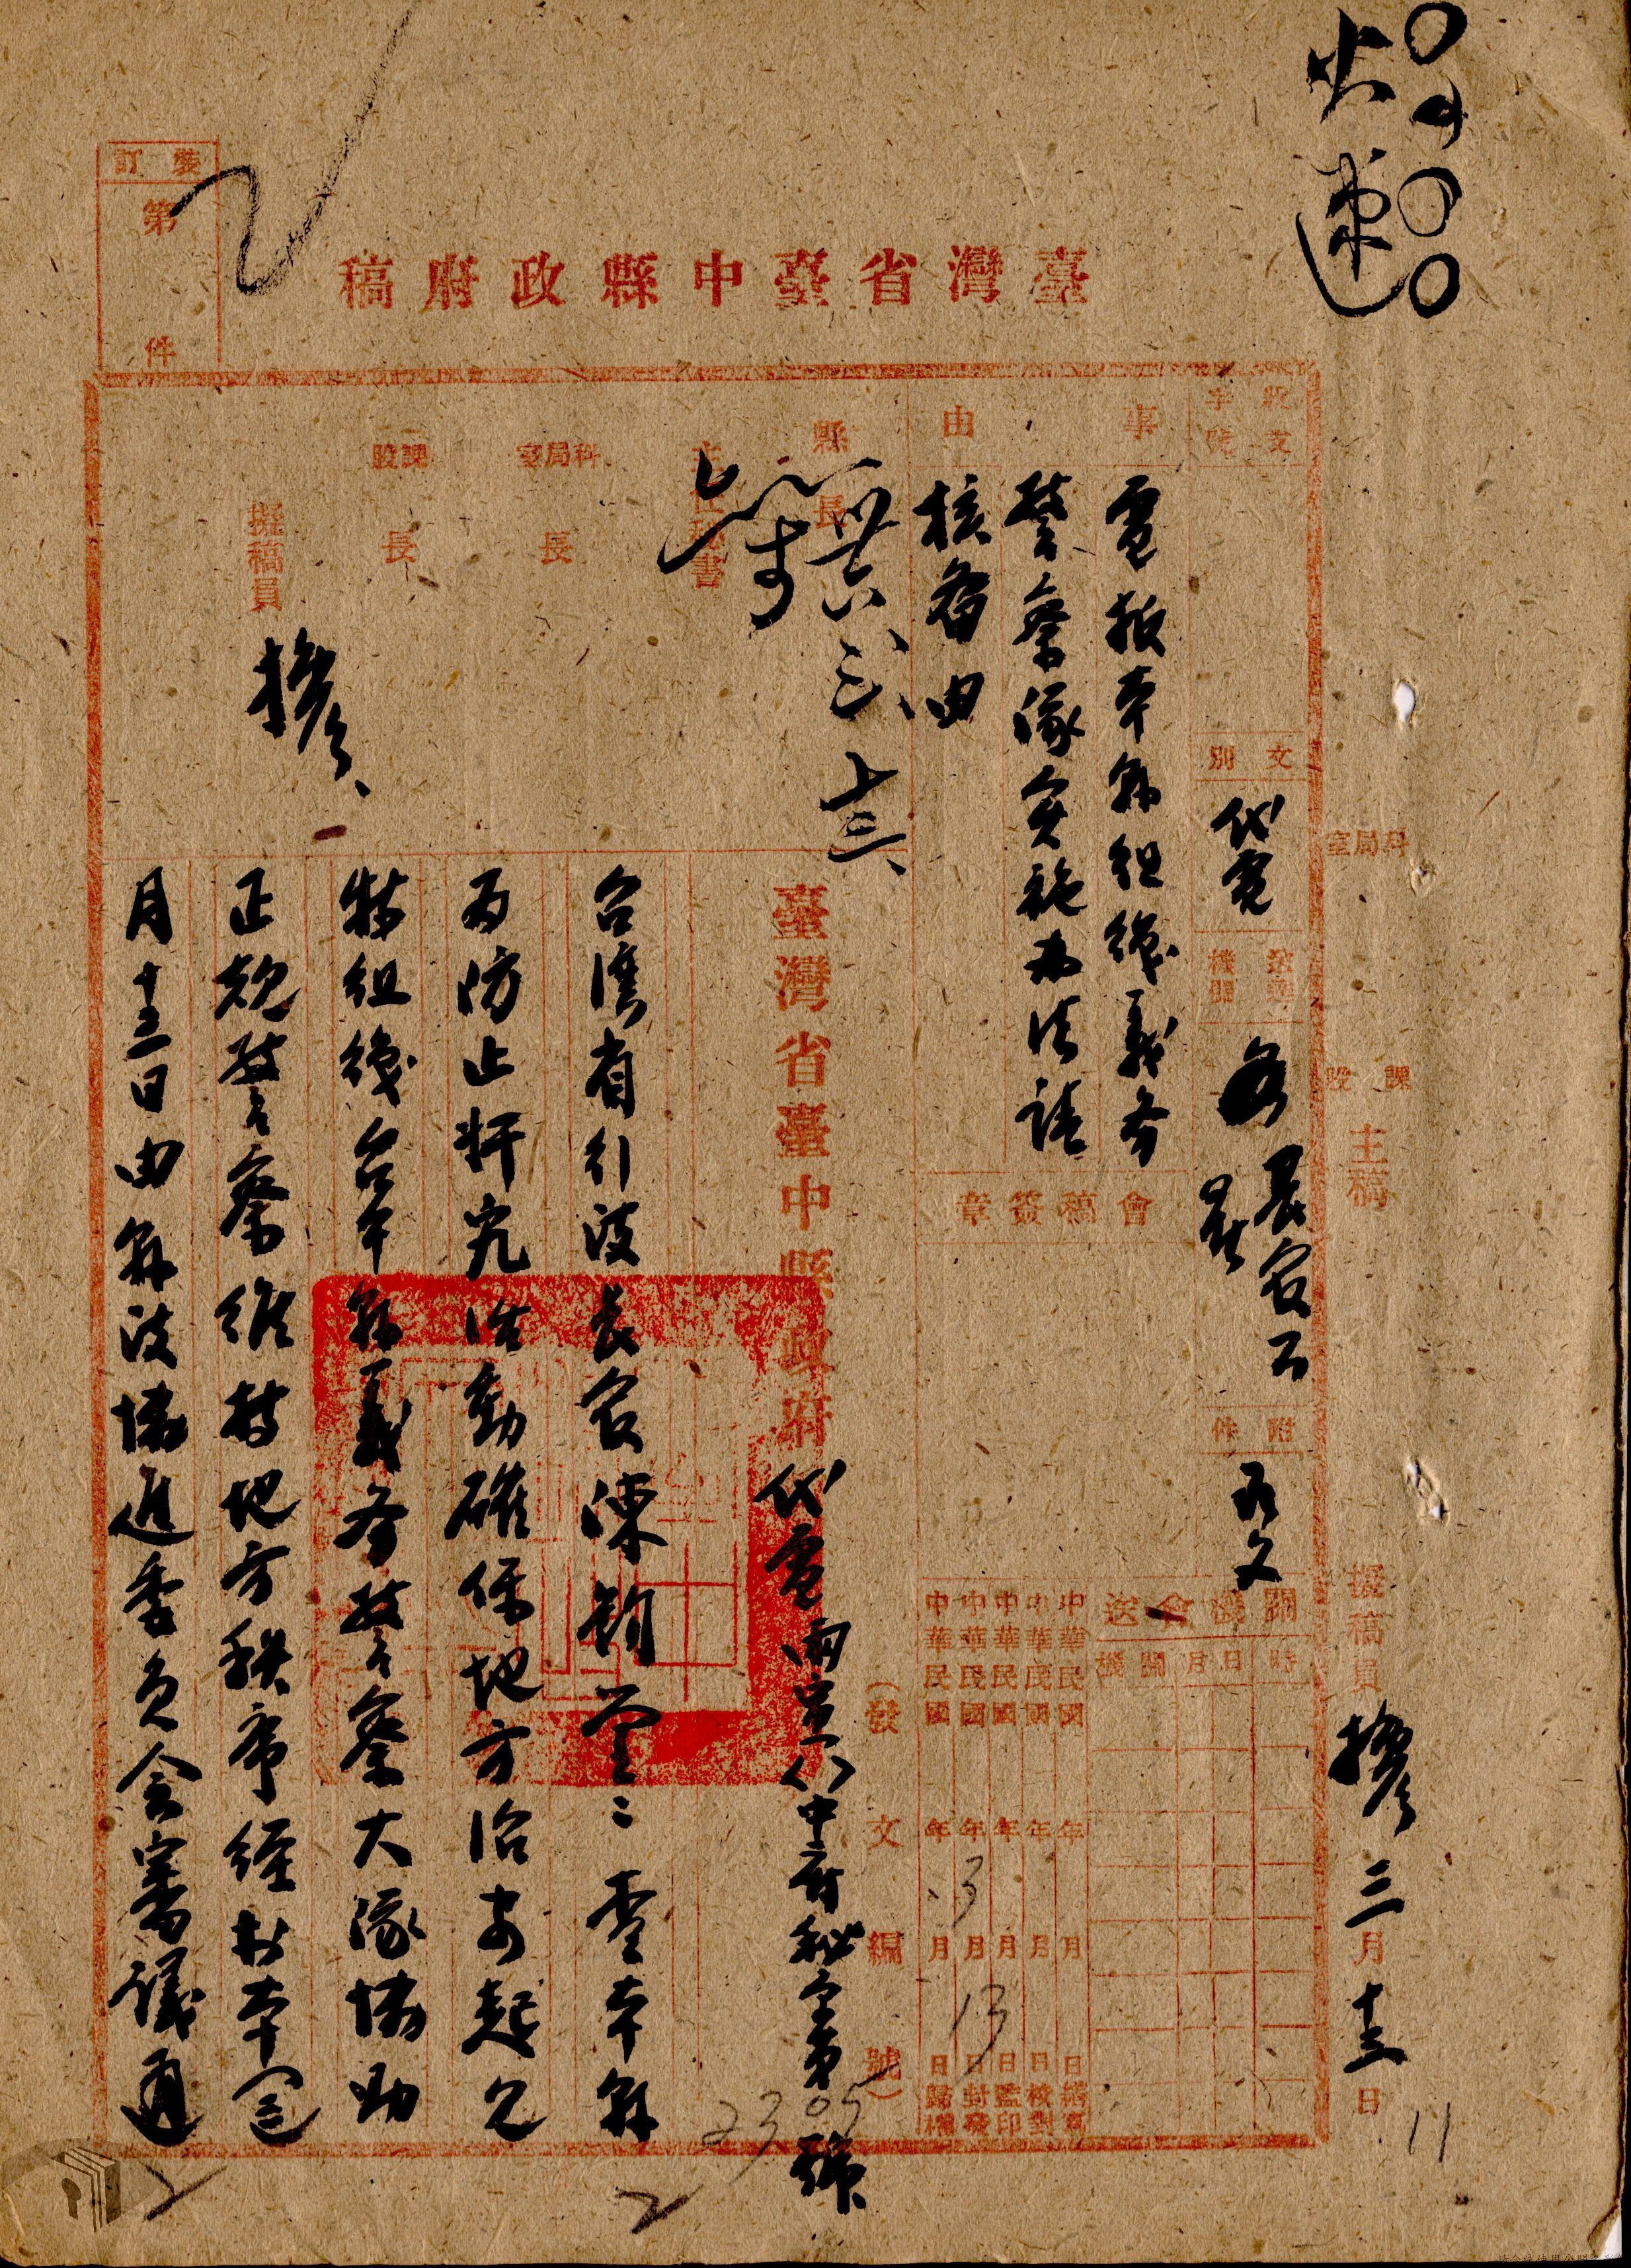 火速
臺灣省臺中縣政府稿
裝訂
第 件
收文
字號
文別
代電
送達機關
長官公署
附件
如文
事由
電報本縣組織義務
警察隊實施办法請
核备由
縣長
主任秘書
科局室長
課股長
擬稿員
卅六 三、十三、
會稿簽章
關機會送
機關 月日時
中華民國 年 月 日繕寫
中華民國 年 月 日核對
中華民國 年 月 日監印
中華民國 年 3 月 13 日封發
中華民國 年 月 日歸檔
(發文編號)
科局室
課股
主稿
擬稿員
三月十三日
11
臺灣省臺中縣政府代電 中府秘字第2305號
台灣省行政長官陳鈞鑒：電本縣
為防止奸宄活動確保地方治安起見
特組織台中縣義务警察大隊協助
正規警察維持地方秩序經於本（三）
月十三日由縣政協進委員会審議通